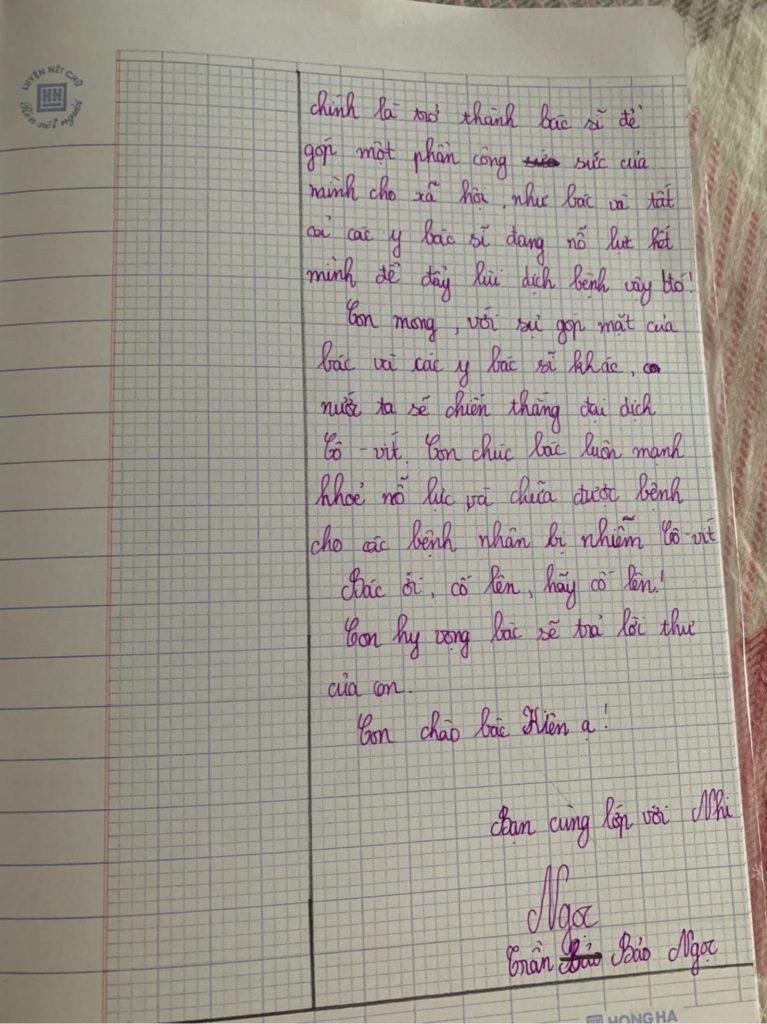 LUYỆN NÉT CHỮ
HH
Rèn nết người
chính là trở thành bác sĩ để
góp một phần công sức của
mình cho xã hội, như bác và tất
cả các y bác sĩ đang nỗ lực hết
mình để đẩy lùi dịch bệnh vậy đó!
Con mong, với sự góp mặt của
bác và các y bác sĩ khác,
nước ta sẽ chiến thắng đại dịch
Cô-vít. Con chúc bác luôn mạnh
khoẻ nỗ lực và chữa được bệnh
cho các bệnh nhân bị nhiễm Cô-vít
Bác ơi, cố lên, hãy cố lên!
Con hy vọng bác sẽ trả lời thư
của con.
Con chào bác Hiên ạ!
Bạn cùng lớp với Nhi
Ngọc
Trần Bảo Ngọc
HONG HA